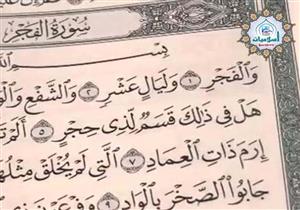 إسلاميات
سُورَةُ الفَجْرِ
بِسْمِ اللَّهِ
وَالْفَجْرِ ١ وَلَيَالٍ عَشْرٍ ٢ وَالشَّفْعِ وَالْوَ
هَلْ فِي ذَلِكَ قَسَمٌ لِّذِي حِجْرٍ ٥ أَلَمْ تَ
إِرَمَ ذَاتِ الْعِمَادِ ٧ الَّتِي لَمْ يُخْلَقْ مِثْلُهَا
جَابُوا الصَّخْرَ بِالْوَادِ ٩ وَفِرْعَوْنَ ذِي